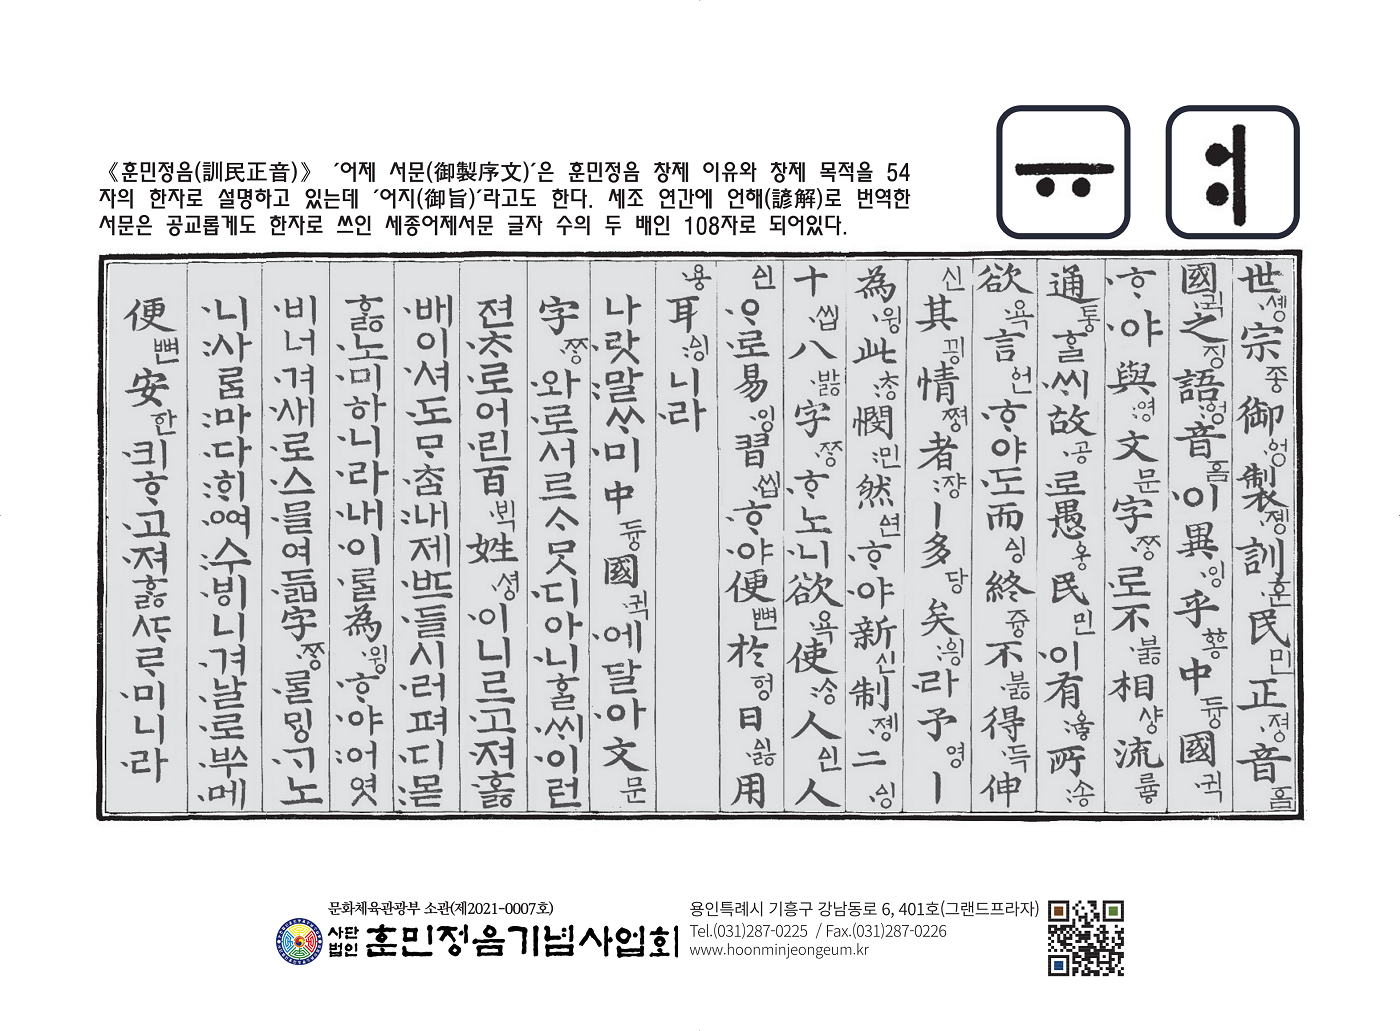 ㅠ ㅕ
《훈민정음(訓民正音)》 ´어제 서문(御製序文)´은 훈민정음 창제 이유와 창제 목적을 54
자의 한자로 설명하고 있는데 ´어지(御旨)´라고도 한다. 세조 연간에 언해(諺解)로 번역한
서문은 공교롭게도 한자로 쓰인 세종어제서문 글자 수의 두 배인 108자로 되어있다.
世솅宗종御엉製졩訓훈民민正졍音ᅙᅳᆷ
國귁之징語엉音ᅙᅳᆷ이異잉乎ᅘᅩᆼ中듕國귁
ᄒᆞ야與영文문字ᄍᆞᆼ로不붏相샹流륳
通통ᄒᆞᆯᄊᆡ故공로愚웅民민이有ᅌᅮᇢ所송
欲욕言언ᄒᆞ야도而ᅀᅵᆼ終즁不붏得득伸
신其끵情쪙者쟝ㅣ多당矣ᅌᅴᆼ라予영ㅣ
為윙此ᄎᆞᆼ憫민然ᅀᅧᆫᄒᆞ야新신制졩二ᅀᅵᆼ
十씹八밣字ᄍᆞᆼᄒᆞ노니欲욕使ᄉᆞᆼ人ᅀᅵᆫ人
ᅀᅵᆫᄋᆞ로易잉習씹ᄒᆞ야便뼌於ᅙᅥᆼ日ᅀᅵᇙ用
용耳ᅀᅵᆼ니라
나랏말ᄊᆞ미中듕國귁에달아文문
字ᄍᆞᆼ와로서르ᄉᆞᄆᆞᆺ디아니ᄒᆞᆯᄊᆡ이런
젼ᄎᆞ로어린百ᄇᆡᆨ姓셩이니르고져호ᇙ
배이셔도ᄆᆞᄎᆞᆷ내제ᄠᅳ들시러펴디몯
호ᇙ노미하니라내이ᄅᆞᆯ為윙ᄒᆞ야어엿
비너겨새로스믈여듧字ᄍᆞᆼᄅᆞᆯᄆᆡᇰᄀᆞ노
니사ᄅᆞᆷ마다ᄒᆡᅇᅧ수ᄫᅵ니겨날로ᄡᅮ메
便뼌安ᅙᅡᆫ킈ᄒᆞ고져ᄒᆞᇙᄯᆞᄅᆞ미니라
문화체육관광부 소관(제2021-0007호)
사단법인 훈민정음기념사업회
용인특례시 기흥구 강남동로 6, 401호(그랜드프라자)
Tel.(031)287-0225 / Fax.(031)287-0226
www.hoonminjeongeum.kr